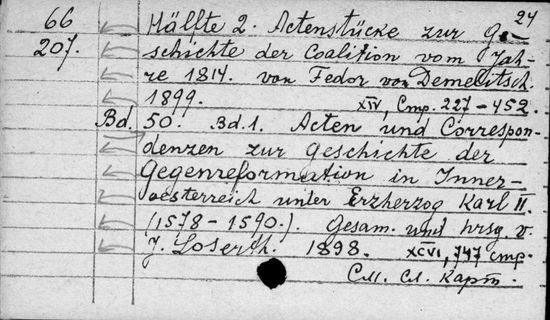 24
66 Hälfte 2. Actenstücke zur Ge-
207. schichte der Coalition vom Jah-
re 1814. von Fedor von Demelitsch.
1899. XIV, Стр. 227-452.
Bd. 50. Bd. 1. Acten und Correspon-
denzen zur Geschichte der
Gegenreformation in Inner-
oesterreich unter Erzherzog Karl II.
(1578-1590.). Gesam. und hrsg. v.
J. Loserth. 1898. XCVI, 747 стр.
См. сл. карт.